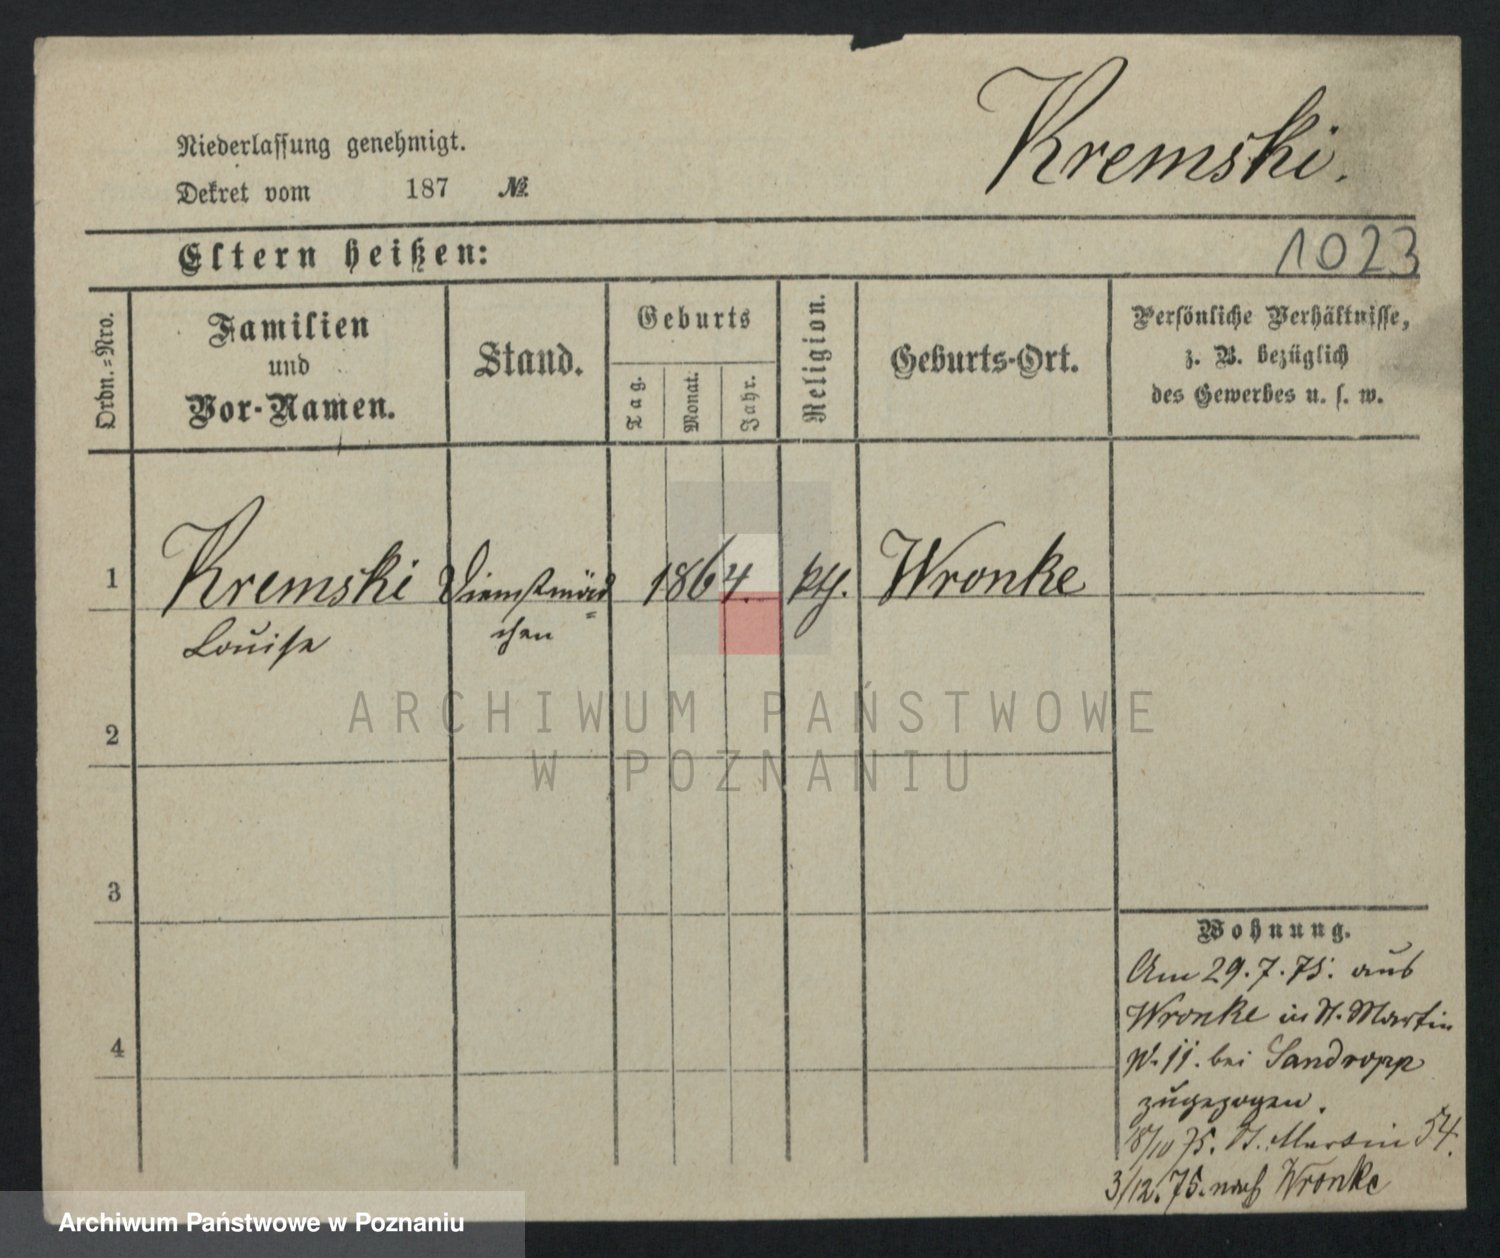 Kremski.
Niederlassung genehmigt.
Dekret vom 187 №
Eltern heißen:
1023
Ordn.=Nro.
Familien
und
Vor-Namen.
Stand.
Geburts
Tag.
Monat.
Jahr.
Religion.
Geburts-Ort.
Persönliche Verhältnisse,
z. B. bezüglich
des Gewerbes u. s. w.
1 Kremski Dienstmäd= 1864. kth. Wronke
Louise chen
2
3
4
ARCHIWUM PAŃSTWOWE
W POZNANIU
Wohnung.
Am 29.7.75. aus
Wronke in St. Martin
N. 11. bei Sandropp
zugezogen.
18/10 75. St. Martin 54.
3/12. 75. nach Wronke
Archiwum Państwowe w Poznaniu